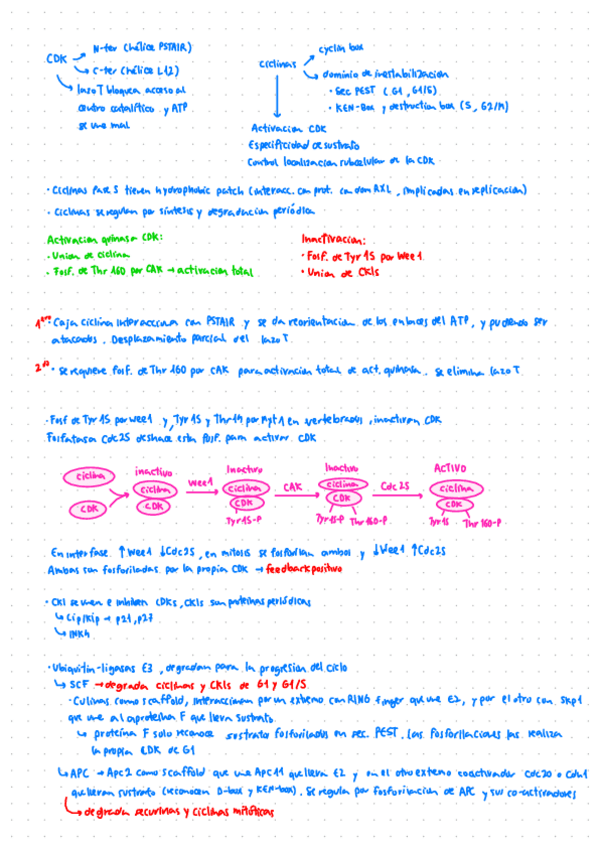 CDK
N-ter (hélice PSTAIR)
C-ter (hélice L12)
lazo T bloquea acceso al
centro catalítico y ATP
se une mal
ciclinas
cyclin box
dominio de inestabilización
· Sec PEST (G1, G1/S)
· KEN-Box y destruction box (S, G2/M)
Activación CDK
Especificidad de sustrato
Control localización subcelular de la CDK
· Ciclinas fase S tienen hydrophobic patch (interacc. con prot. con dom RXL, implicadas en replicación)
· Ciclinas se regulan por síntesis y degradación periódica
Activación quinasa CDK:
· Unión de ciclina
· Fosf. de Thr 160 por CAK → activación total
Inactivación:
· Fosf. de Tyr 15 por Wee1
· Unión de CKIs
1ero · Caja ciclina interacciona con PSTAIR y se da reorientación de los enlaces del ATP, y pudiendo ser
atacados. Desplazamiento parcial del lazo T.
2do · Se requiere fosf. de Thr 160 por CAK para activación total de act. quinasa. Se elimina lazo T
· Fosf de Tyr 15 por wee1 y, Tyr 15 y Thr 14 por Myt1 en vertebrados, inactivan CDK
Fosfatasa Cdc25 deshace esta fosf. para activar CDK
ciclina
CDK
inactivo
ciclina
CDK
wee1
Inactivo
ciclina
CDK
Tyr15-P
CAK
Inactivo
ciclina
CDK
Tyr15-P Thr160-P
Cdc25
ACTIVO
ciclina
CDK
Tyr15 Thr160-P
En interfase ↑Wee1 ↓Cdc25, en mitosis se fosforilan ambos y ↓Wee1 ↑Cdc25
Ambas son fosforiladas por la propia CDK → feedback positivo
· CKI se unen e inhiben CDKs, CKIs son proteínas periódicas
Cip/Kip → p21, p27
INK4
· Ubiquitin-ligasas E3, degradan para la progresión del ciclo
SCF → degrada ciclinas y CKIs de G1 y G1/S
· Culinas como scaffold, interaccionan por un extremo con RING finger que une E2, y por el otro con Skp1
que une a la proteína F que lleva sustrato.
proteína F solo reconoce sustrato fosforilados en sec. PEST. Las fosforilaciones las realiza
la propia CDK de G1
APC → Apc2 como scaffold que une Apc11 que lleva E2 y en el otro extremo coactivador Cdc20 o Cdh1
que llevan sustrato (reconocen D-box y KEN-box). Se regula por fosforilación de APC y sus co-activadores
degrada securinas y ciclinas mitóticas